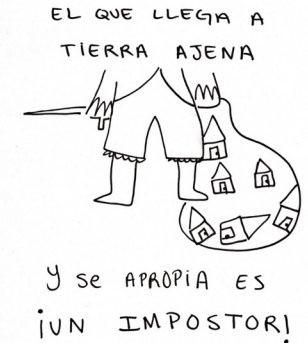 EL QUE LLEGA A
TIERRA AJENA
Y SE APROPIA ES
¡UN IMPOSTOR!